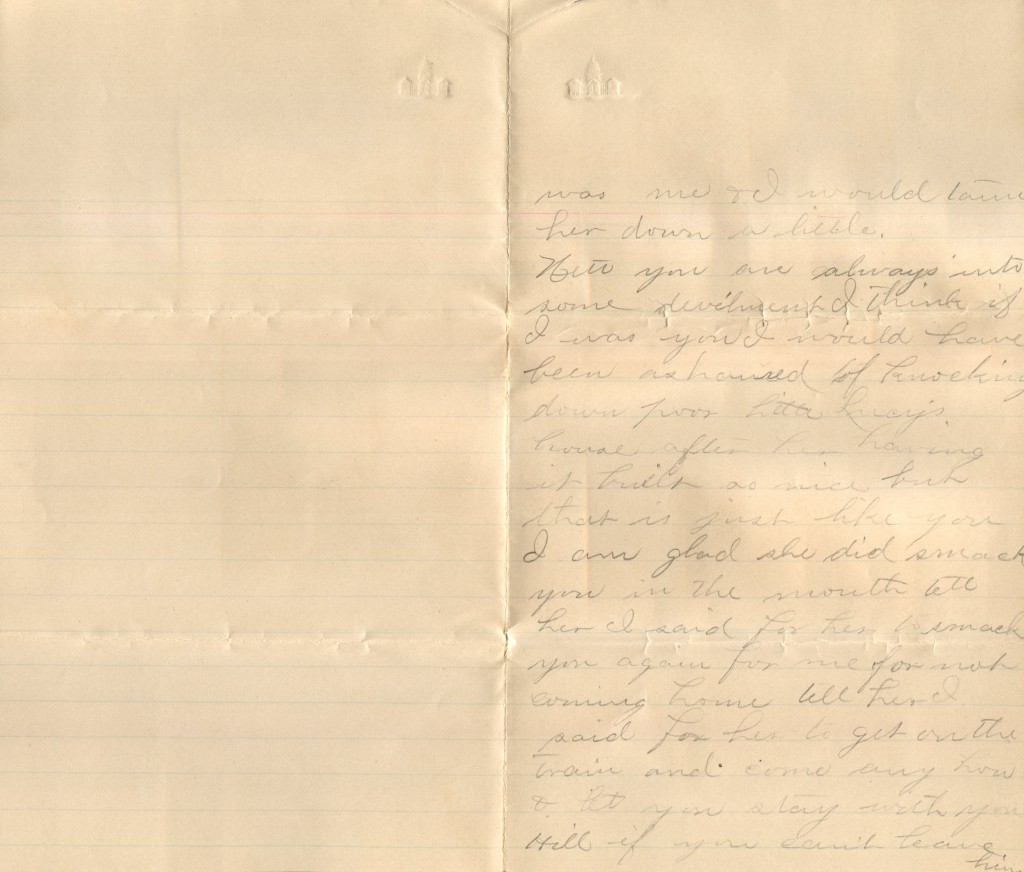 was me & I would tame
her down a little.
Nett you are always into
some devilment I think if
I was you I would have
been ashamed of knocking
down poor little
house after her having
it built so nice but
that is just like you
I am glad she did smack
you in the mouth tell
her I said for her to smack
you again for me for not
coming home tell her I
said for her to get on the
train and come any how
& let you stay with you
Hill if you can't leave
him